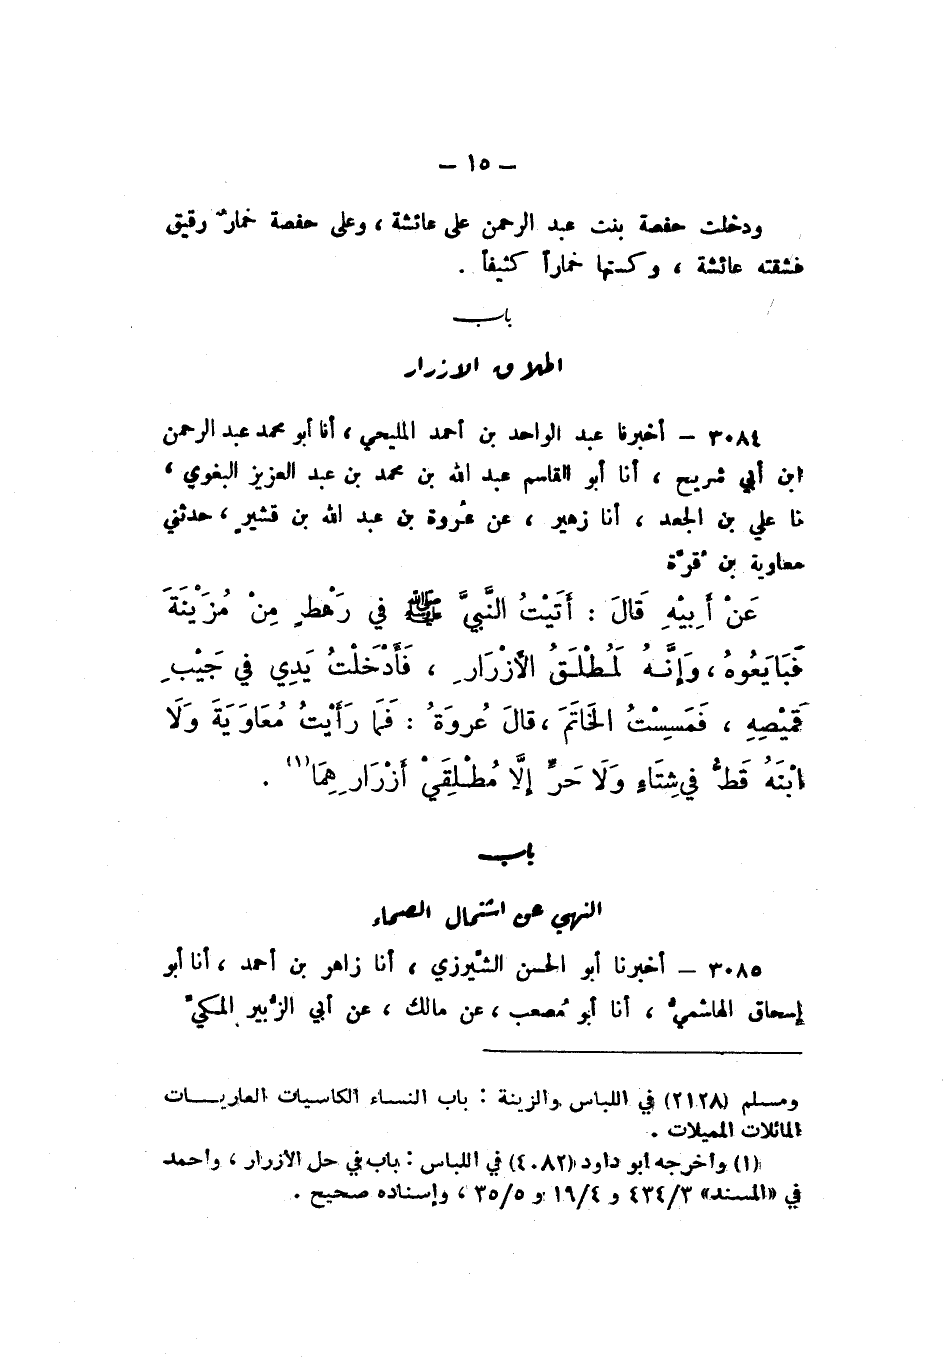 – ١٥ –
ودخلت حفصة بنت عبد الرحمن على عائشة ، وعلى حفصة خمارٌ رقيق
فشقته عائشة ، وكستها خماراً كثيفاً .
باب
اطلاق الازرار
٣٠٨٤ – أخبرنا عبد الواحد بن أحمد المليحي ، أنا أبو محمد عبد الرحمن
ابن أبي شريح ، أنا أبو القاسم عبد الله بن محمد بن عبد العزيز البغوي ،
نا علي بن الجعد ، أنا زهير ، عن عُروة بن عبد الله بن قشيرٍ ، حدثني
معاوية بن قُرَّة
عَنْ أَبِيْهِ قَالَ : أَتَيْتُ النَّبِيَّ ﷺ فِي رَهْطٍ مِنْ مُزَيْنَةَ
فَبَايَعُوهُ ، وَإِنَّهُ لَمُطْلَقُ الأَزْرَارِ ، فَأَدْخَلْتُ يَدِي فِي جَيْبِ
قَمِيْصِهِ ، فَمَسِسْتُ الخَاتَمَ ، قَالَ عُروَةُ : فَمَا رَأَيْتُ مُعَاوَيَةَ وَلَا
ابْنَهُ قَطُّ فِي شِتَاءٍ وَلَا حَرٍّ إِلَّا مُطْلِقَيْ أَزْرَارِهِمَا(١) .
باب
النهي عن اشتمال الصماء
٣٠٨٥ – أخبرنا أبو الحسن الشِّيرزي ، أنا زاهر بن أحمد ، أنا أبو
إسحاق الهاشميُّ ، أنا أبو مُصعب ، عن مالك ، عن أبي الزُّبير المكيِّ
ومسلم (٢١٢٨) في اللباس والزينة : باب النساء الكاسيات العاريات
المائلات المميلات .
(١) وأخرجه أبو داود (٤٠٨٢) في اللباس : باب في حل الأزرار ، وأحمد
في «المسند» ٤٣٤/٣ و ١٩/٤ و ٣٥/٥ ، وإسناده صحيح .